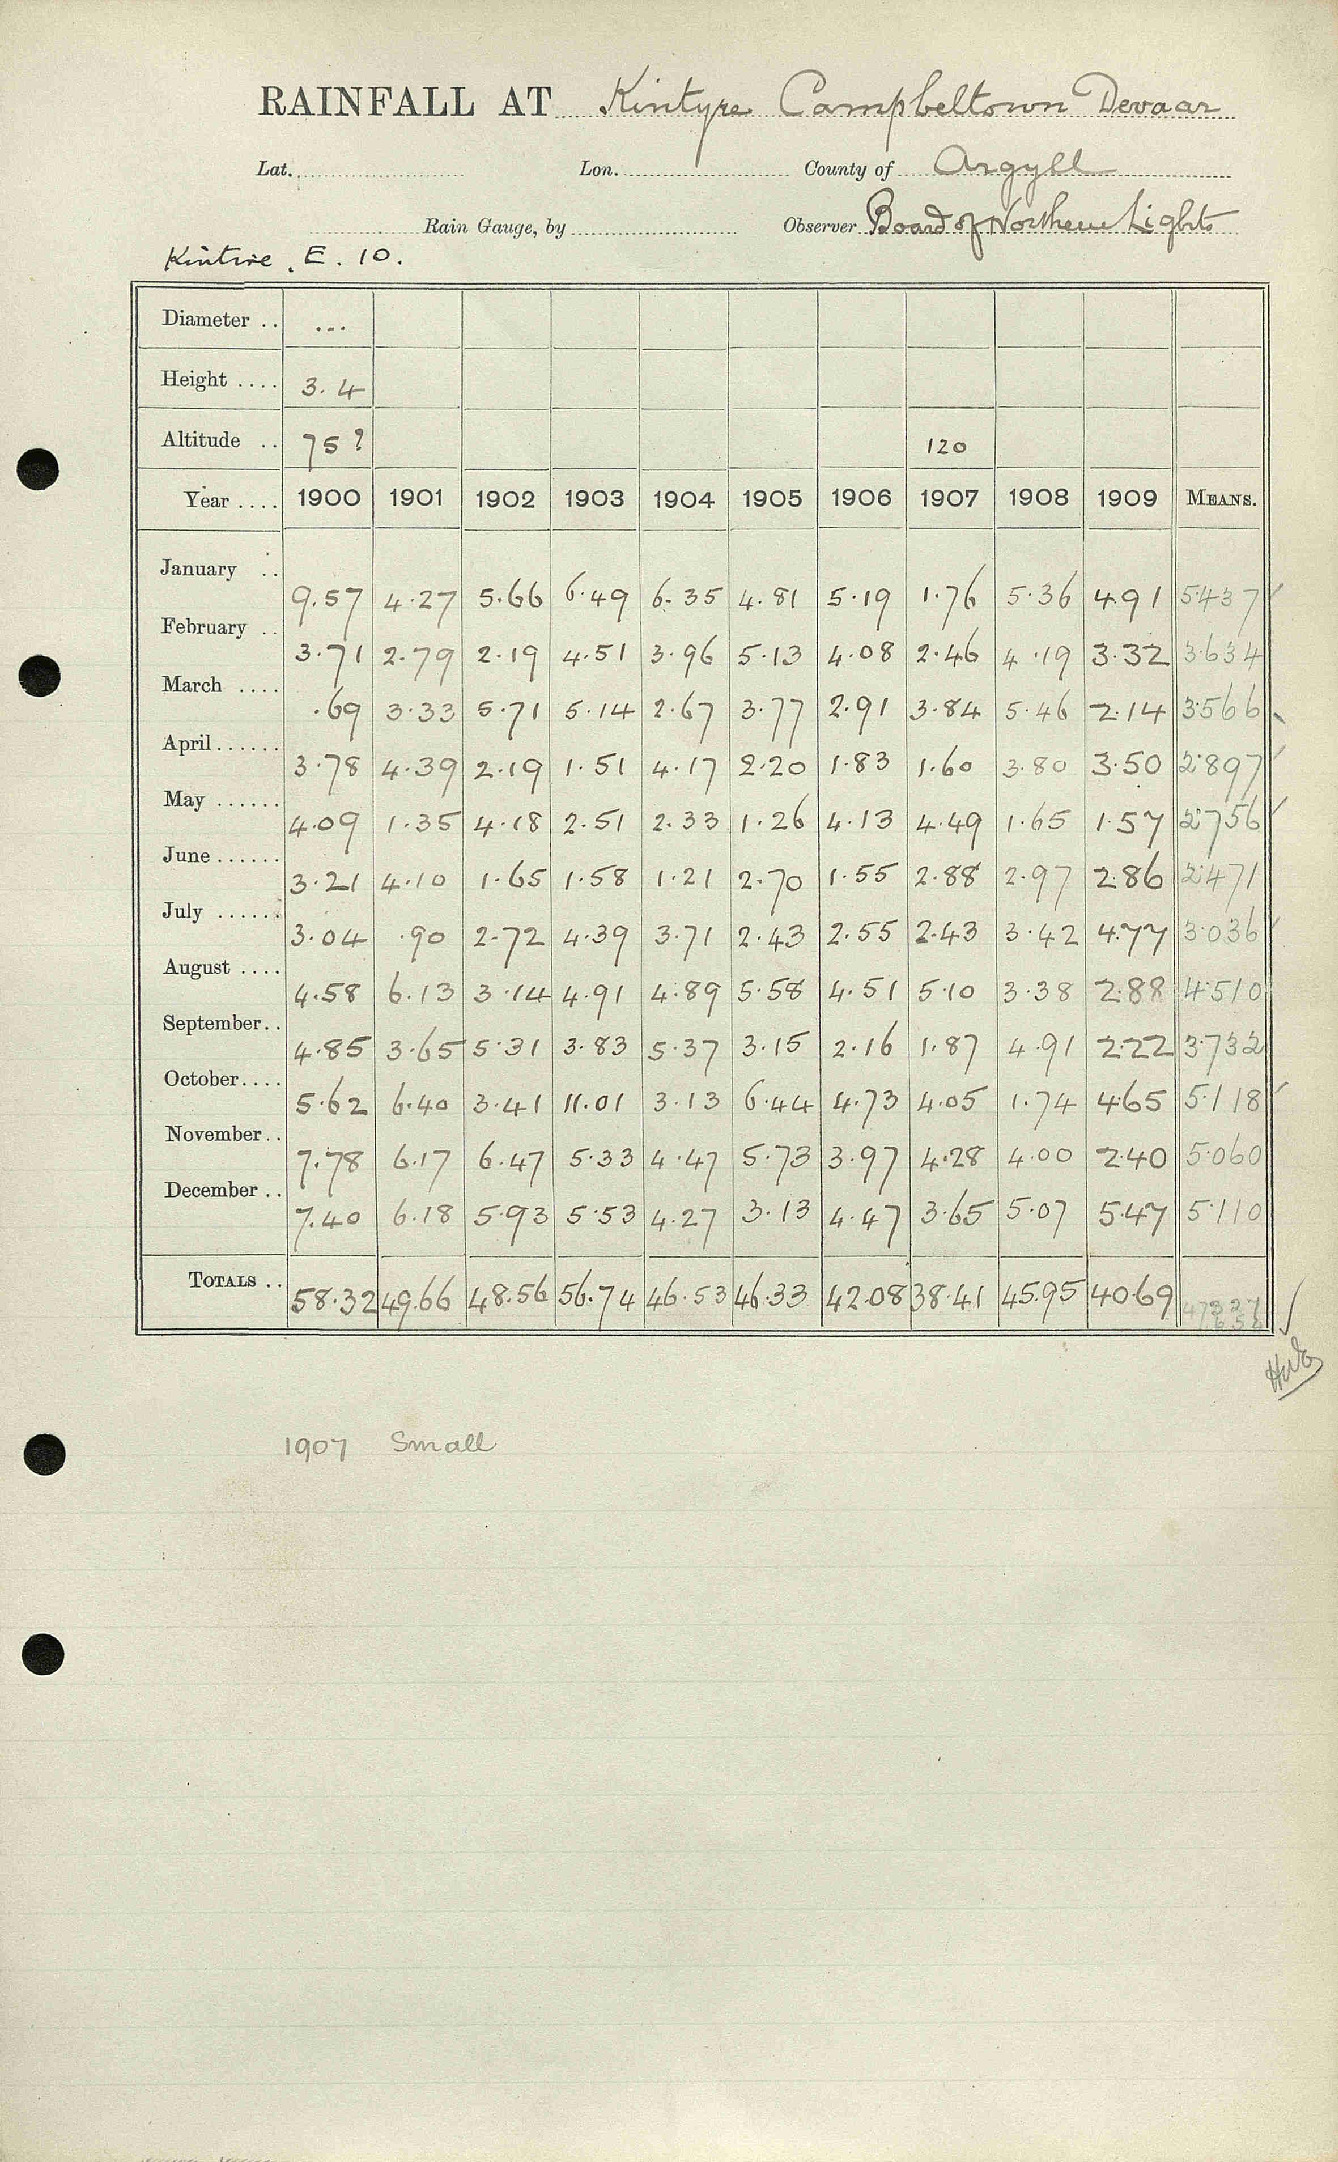 RAINFALL AT Kintyre Campbeltown Devaar
Lat. Lon. County of Argyll
Rain Gauge, by Observer Board of Northern Lights
Kintire . E . 10 .
Diameter .. ...
Height .... 3.4
Altitude .. 75? 120
Year .... 1900 1901 1902 1903 1904 1905 1906 1907 1908 1909 MEANS.
January .. 9.57 4.27 5.66 6.49 6.35 4.81 5.19 1.76 5.36 4.91 5.437
February .. 3.71 2.79 2.19 4.51 3.96 5.13 4.08 2.46 4.19 3.32 3.634
March .... .69 3.33 5.71 5.14 2.67 3.77 2.91 3.84 5.46 2.14 3.566
April ...... 3.78 4.39 2.19 1.51 4.17 2.20 1.83 1.60 3.80 3.50 2.897
May ...... 4.09 1.35 4.18 2.51 2.33 1.26 4.13 4.49 1.65 1.57 2.756
June ...... 3.21 4.10 1.65 1.58 1.21 2.70 1.55 2.88 2.97 2.86 2.471
July ...... 3.04 .90 2.72 4.39 3.71 2.43 2.55 2.43 3.42 4.77 3.036
August .... 4.58 6.13 3.14 4.91 4.89 5.58 4.51 5.10 3.38 2.88 4.510
September .. 4.85 3.65 5.31 3.83 5.37 3.15 2.16 1.87 4.91 2.22 3.732
October .... 5.62 6.40 3.41 11.01 3.13 6.44 4.73 4.05 1.74 4.65 5.118
November .. 7.78 6.17 6.47 5.33 4.47 5.73 3.97 4.28 4.00 2.40 5.060
December .. 7.40 6.18 5.93 5.53 4.27 3.13 4.47 3.65 5.07 5.47 5.110
TOTALS .. 58.32 49.66 48.56 56.74 46.53 46.33 42.08 38.41 45.95 40.69
1907 Small